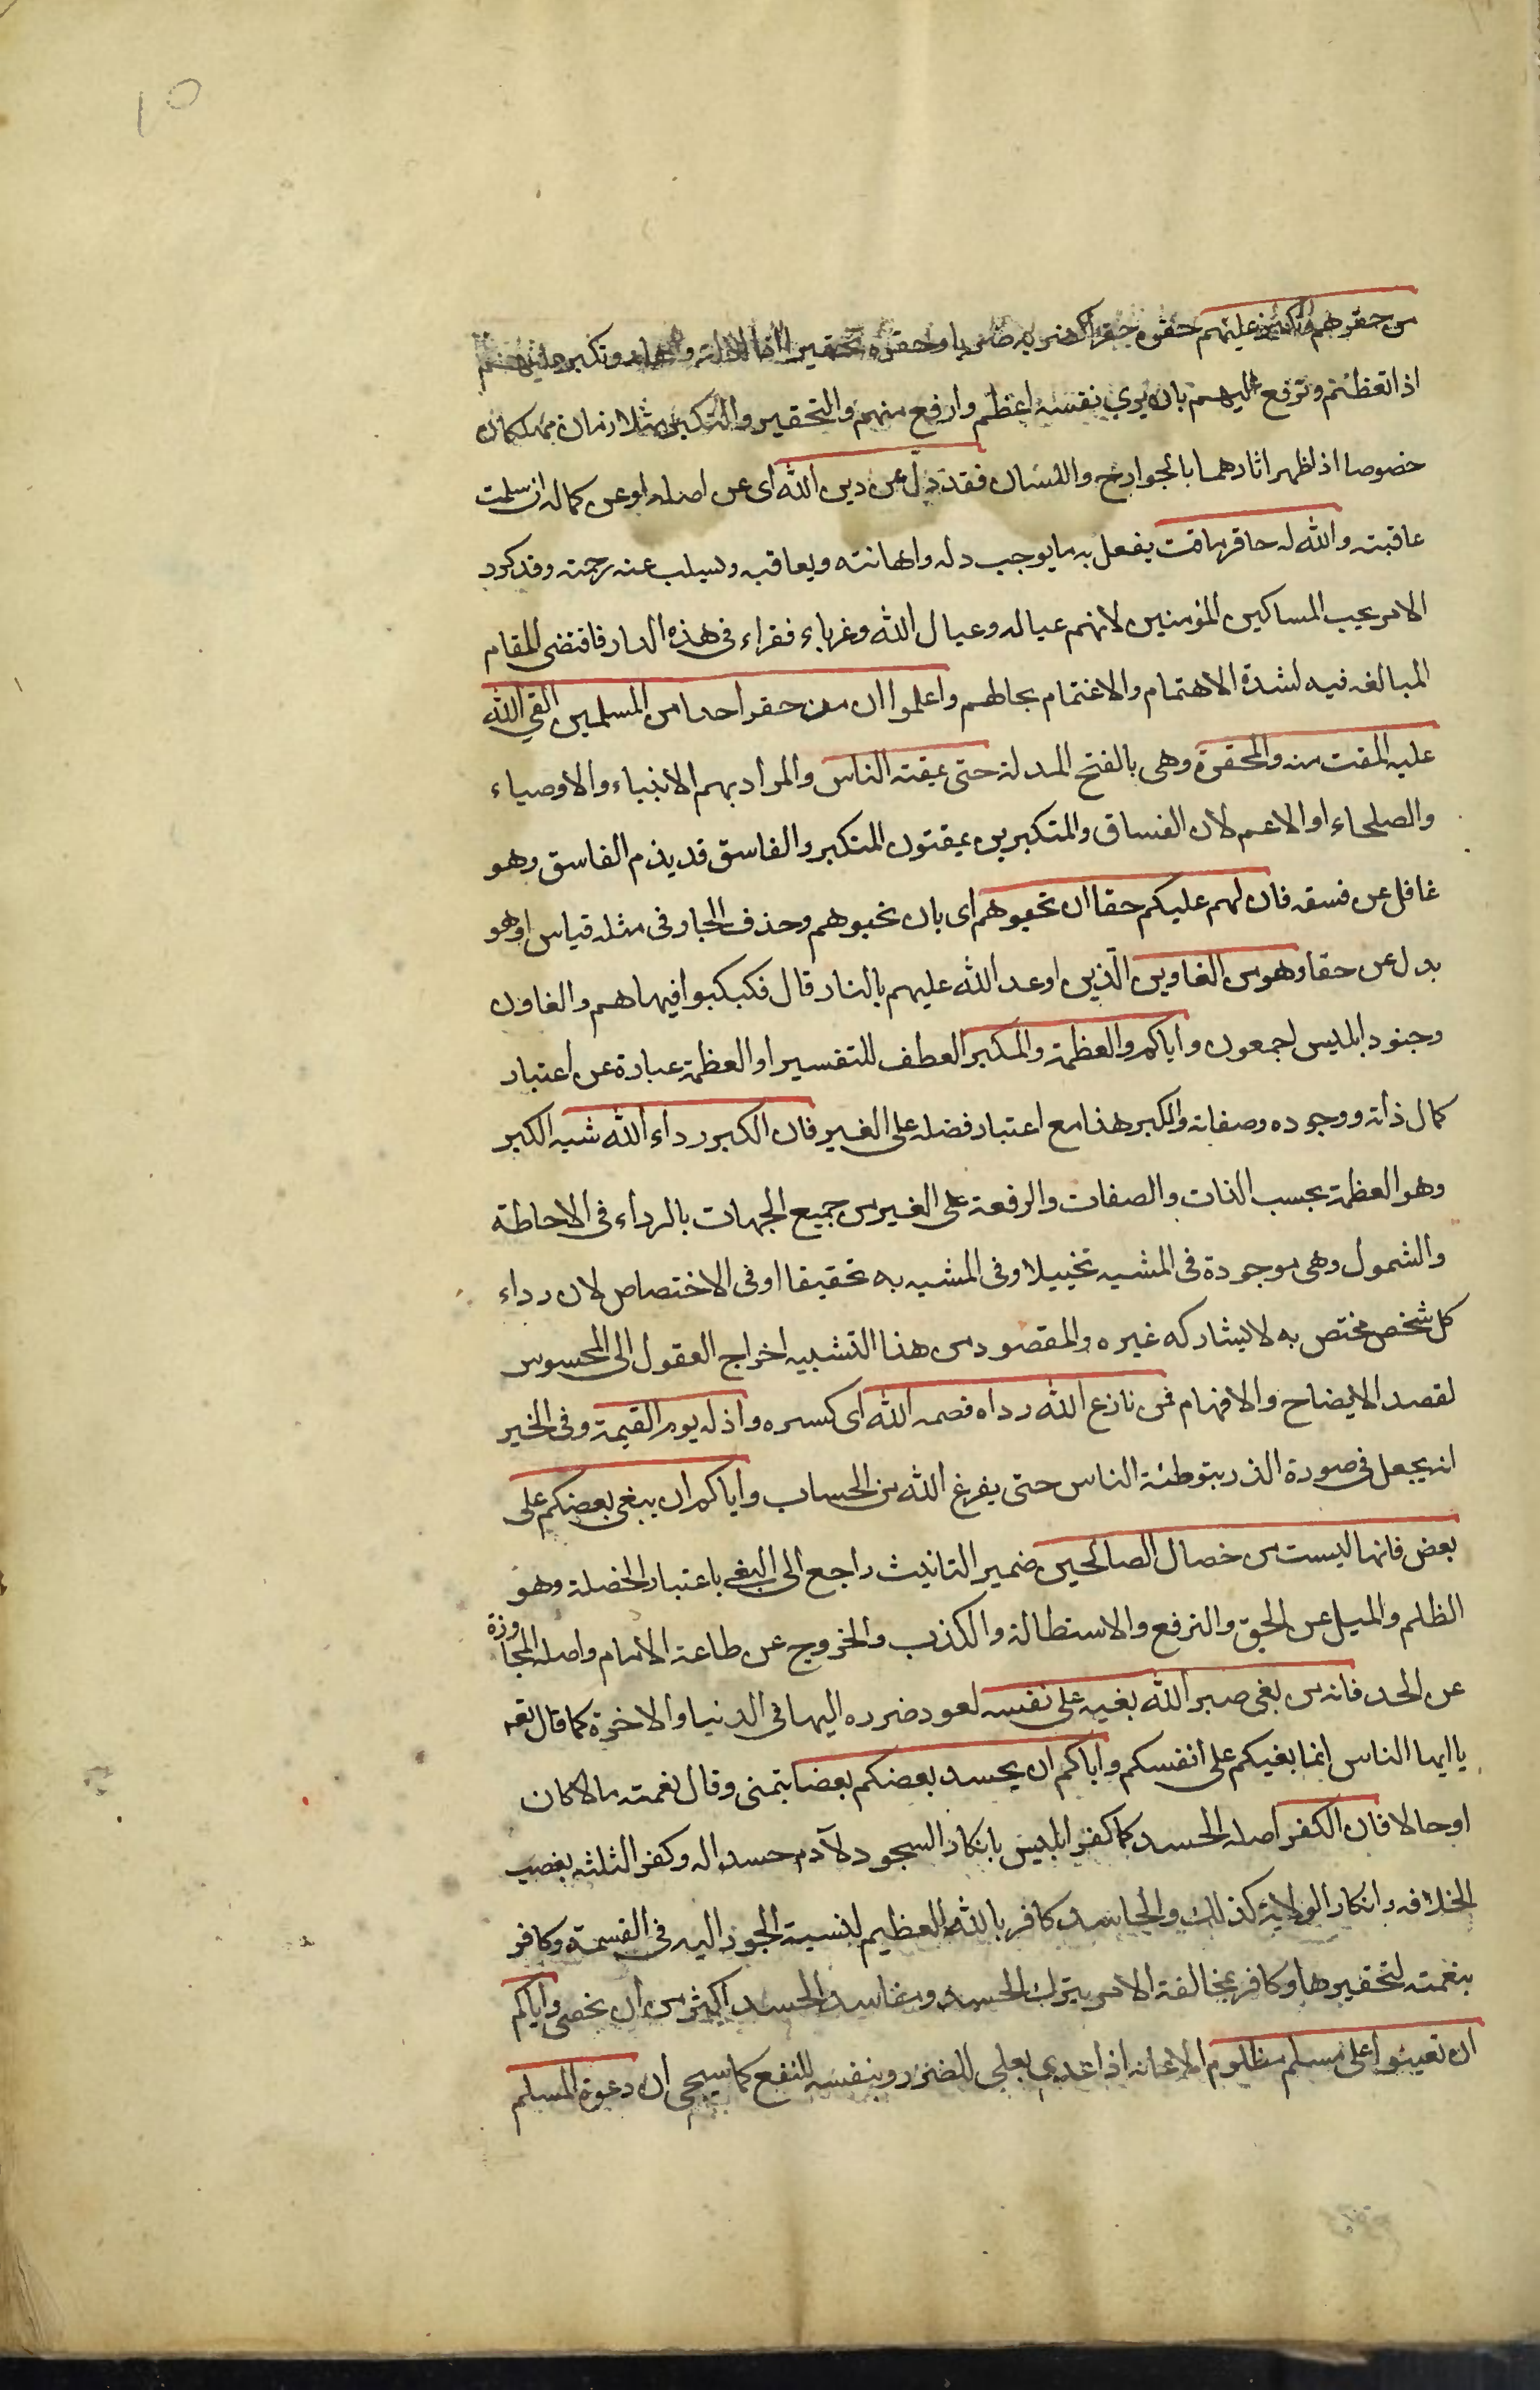 من حقرهم وتكبر عليهم حقره حقرا كضربه ضربا وحقره تحقيرا اذا اذله وتكبر عليهم
اذا تعظم وترفع عليهم بان يرى نفسه اعظم وارفع منهم والتحقير والتكبر متلازمان مهلكان
خصوصا اذا ظهر اثارهما بالجوارح واللسان فقد زل عن دين الله اى عن اصله او عن كماله ان سلمت
عاقبته والله له حاقر ماقت يفعل به ما يوجب ذله واهانته ويعاقبه ويسلب عنه رحمته وقد كرر
الامر بحب المساكين المؤمنين لانهم عياله وعيال الله وغرباء فقراء فى هذه الدار فاقتضى المقام
المبالغه فيه لشدة الاهتمام والاغتمام بحالهم واعلموا ان من حقر احدا من المسلمين القى الله
عليه المقت منه والمحقرة وهى بالفتح المذلة حتى يمقته الناس والمراد بهم الانبياء والاوصياء
والصلحاء او الاعم لان الفساق والمتكبرين يمقتون المتكبر والفاسق قد يذم الفاسق وهو
غافل عن فسقه فان لهم عليكم حقا ان تحبوهم اى بان تحبوهم وحذف الجار فى مثله قياس او هو
بدل عن حقا وهو من الغاوين الذين اوعد الله عليهم بالنار قال فكبكبوا فيها هم والغاون
وجنود ابليس اجمعون واياكم والعظمة والكبر العطف للتفسير او العظمة عبارة عن اعتبار
كمال ذاته ووجوده وصفاته والكبر هذا مع اعتبار فضله على الغير فان الكبر رداء الله شبه الكبر
وهو العظمة بحسب الذات والصفات والرفعة على الغير من جميع الجهات بالرداء فى الاحاطة
والشمول وهى موجودة فى المشبه تخييلا وفى المشبه به تحقيقا او فى الاختصاص لان رداء
كل شخص مختص به لا يشاركه غيره والمقصود من هذا التشبيه اخراج العقول الى المحسوس
لقصد الايضاح والافهام فمن نازع الله رداه قصمه الله اى كسره واذله يوم القيمة وفى الخبر
انه يجعل فى صورة الذر يتوطئه الناس حتى يفرغ الله من الحساب واياكم ان يبغى بعضكم على
بعض فانها ليست من خصال الصالحين ضمير التانيث راجع الى البغى باعتبار الخصلة وهو
الظلم والميل عن الحق والترفع والاستطالة والكذب والخروج عن طاعة الامام واصله المجاوزة
عن الحد فانه من بغى صير الله بغيه على نفسه لعود ضرره اليها فى الدنيا والاخرة كما قال تعه
يا ايها الناس انما بغيكم على انفسكم واياكم ان يحسد بعضكم بعضا بتمنى زوال نعمته مالا كان
او حالا فان الكفر اصله الحسد كما كفر ابليس بانكار السجود لآدم حسدا له وكفر الثلثه بغصب
الخلافه وانكار الولاية كذلك والحاسد كافر بالله العظيم لنسبة الجور اليه فى القسمة وكافر
بنعمته لتحقيرها وكافر بمخالفة الامر بترك الحسد ومفاسد الحسد اكثر من ان تحصى واياكم
ان تعينوا على مسلم مظلوم الاعانه اذا عدى بعلى للضرر وبنفسه للنفع كما سيجى ان دعوة المسلم